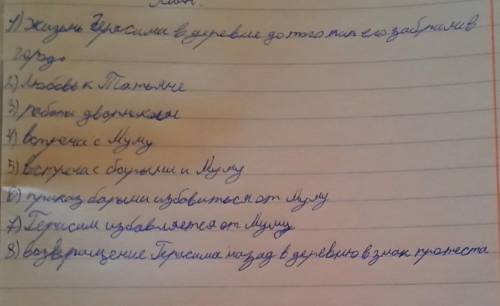 План.
1) жизнь Герасима в деревне до того как его забрали в
город
2) любовь к Татьяне
3) работа дворником
4) встреча с Муму
5) встреча с барыни и Муму
6) приказ барыни избавиться от Муму
7) Герасим избавляется от Муму
8) возвращение Герасима назад в деревню в знак протеста